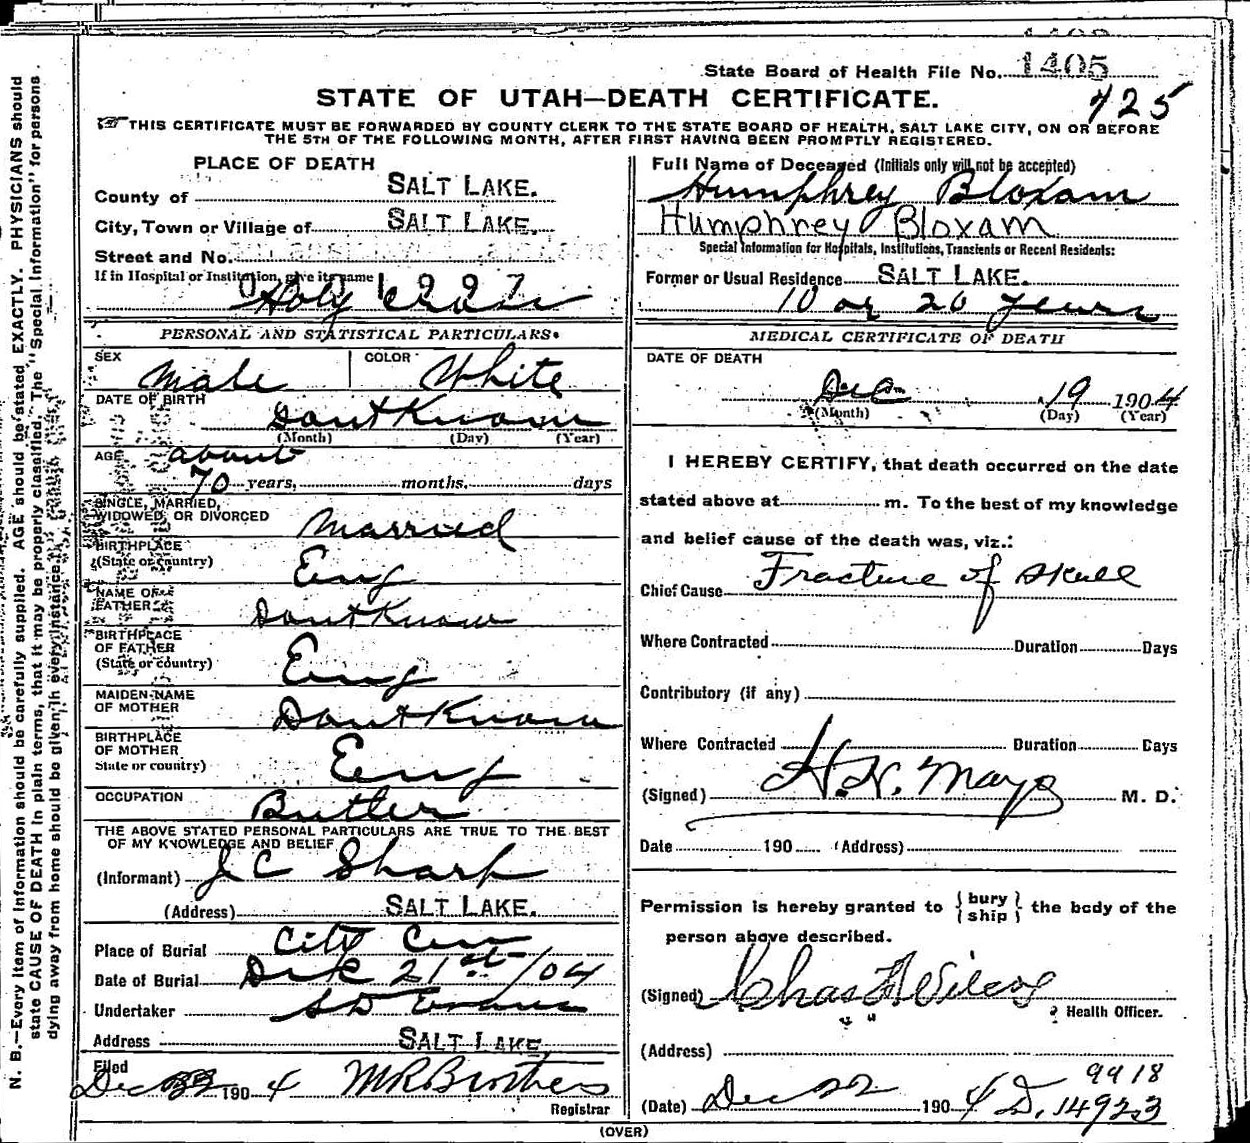 State Board of Health File No. 1405
STATE OF UTAH—DEATH CERTIFICATE.
725
THIS CERTIFICATE MUST BE FORWARDED BY COUNTY CLERK TO THE STATE BOARD OF HEALTH, SALT LAKE CITY, ON OR BEFORE
THE 5TH OF THE FOLLOWING MONTH, AFTER FIRST HAVING BEEN PROMPTLY REGISTERED.
PLACE OF DEATH
County of SALT LAKE.
City, Town or Village of SALT LAKE.
Street and No.
If in Hospital or Institution, give its name
Holy Cross
PERSONAL AND STATISTICAL PARTICULARS.
SEX Male COLOR White
DATE OF BIRTH
Dont Know
(Month) (Day) (Year)
AGE about
70 years, months. days
SINGLE, MARRIED,
WIDOWED, OR DIVORCED Married
BIRTHPLACE
(State or country) Eng
NAME OF
FATHER Dont Know
BIRTHPLACE
OF FATHER
(State or country) Eng
MAIDEN NAME
OF MOTHER Dont Know
BIRTHPLACE
OF MOTHER
State or country) Eng
OCCUPATION Butler
THE ABOVE STATED PERSONAL PARTICULARS ARE TRUE TO THE BEST
OF MY KNOWLEDGE AND BELIEF
(Informant) J C Sharp
(Address) SALT LAKE.
Place of Burial City Cem
Date of Burial Dec 21st /04
Undertaker S D Evans
Address SALT LAKE.
Filed
Dec 190 4 M R Brothers
Registrar
Full Name of Deceased (Initials only will not be accepted)
Humphrey Bloxam
Humphrey Bloxam
Special Information for Hospitals, Institutions, Transients or Recent Residents:
Former or Usual Residence SALT LAKE.
10 or 20 years
MEDICAL CERTIFICATE OF DEATH
DATE OF DEATH
Dec 19 1904
(Month) (Day) (Year)
I HEREBY CERTIFY, that death occurred on the date
stated above at m. To the best of my knowledge
and belief cause of the death was, viz.:
Chief Cause Fracture of Skull
Where Contracted Duration Days
Contributory (if any)
Where Contracted Duration Days
(Signed) H. N. Mayo M. D.
Date 190 (Address)
Permission is hereby granted to {bury
ship} the body of the
person above described.
(Signed) Chas F Wilcox
Health Officer.
(Address)
9918
(Date) Dec 22 190 4 D. 14923
(OVER)
N. B.—Every item of information should be carefully supplied. AGE should be stated EXACTLY. PHYSICIANS should
state CAUSE OF DEATH in plain terms, that it may be properly classified. The "Special Information" for persons
dying away from home should be given in every instance.